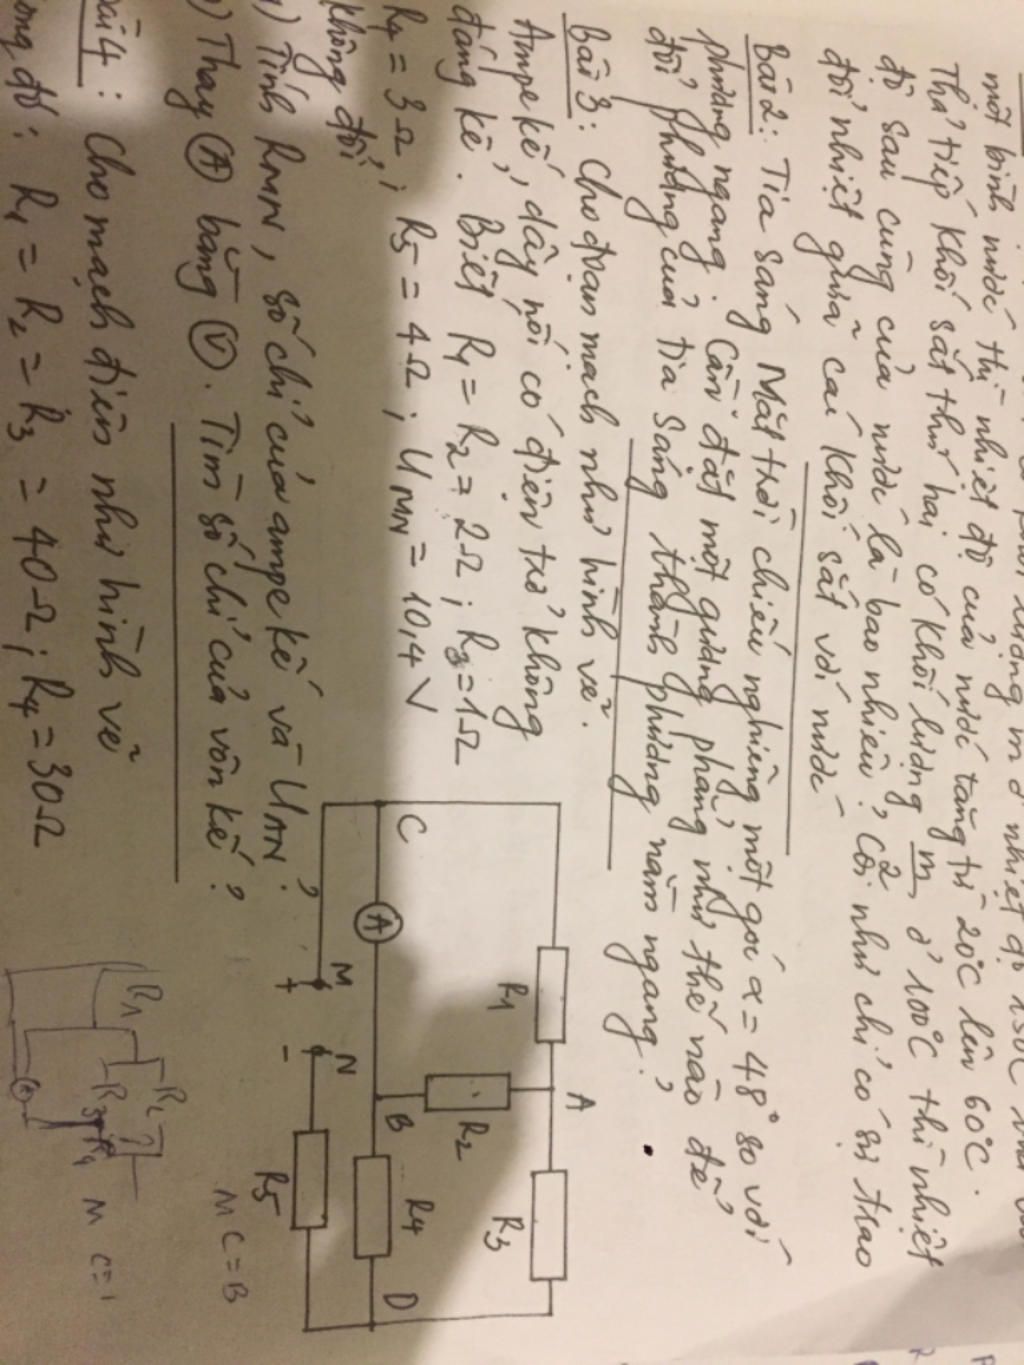 một bình nước thì nhiệt độ của nước tăng từ 20°C lên 60°C.
Thả tiếp khối sắt thứ hai có khối lượng m/2 ở 100°C thì nhiệt
độ sau cùng của nước là bao nhiêu? Coi như chỉ có sự trao
đổi nhiệt giữa các khối sắt với nước
Bài 2: Tia sáng Mặt trời chiếu nghiêng một góc α = 48° so với
phương ngang. Cần đặt một gương phẳng như thế nào để
đổi phương của tia sáng thành phương nằm ngang?
Bài 3: Cho đoạn mạch như hình vẽ.
Ampe kế, dây nối có điện trở không
đáng kể. Biết R1 = R2 = 2Ω; R3 = 1Ω
R4 = 3Ω; R5 = 4Ω; UMN = 10,4 V
không đổi.
a) Tính RMN, số chỉ của ampe kế và UAN?
b) Thay (A) bằng (V). Tìm số chỉ của vôn kế?
C
R1
A
R3
R2
A
B
R4
D
M
+
-
N
R5
M C≡B
Bài 4: Cho mạch điện như hình vẽ
Trong đó: R1 = R2 = R3 = 40Ω; R4 = 30Ω
R1
R2
R3
R4